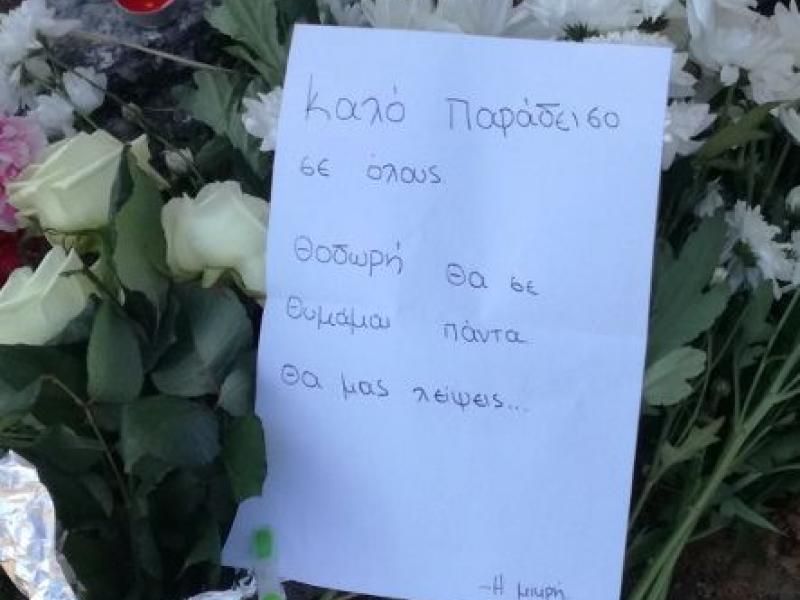 Καλό Παράδεισο
σε όλους
Θοδωρή θα σε
θυμάμαι πάντα
Θα μας λείψεις...
-Η μικρή